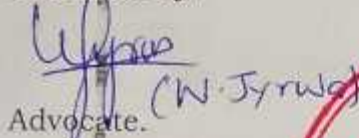 (W. Jyrwa)
Advocate.